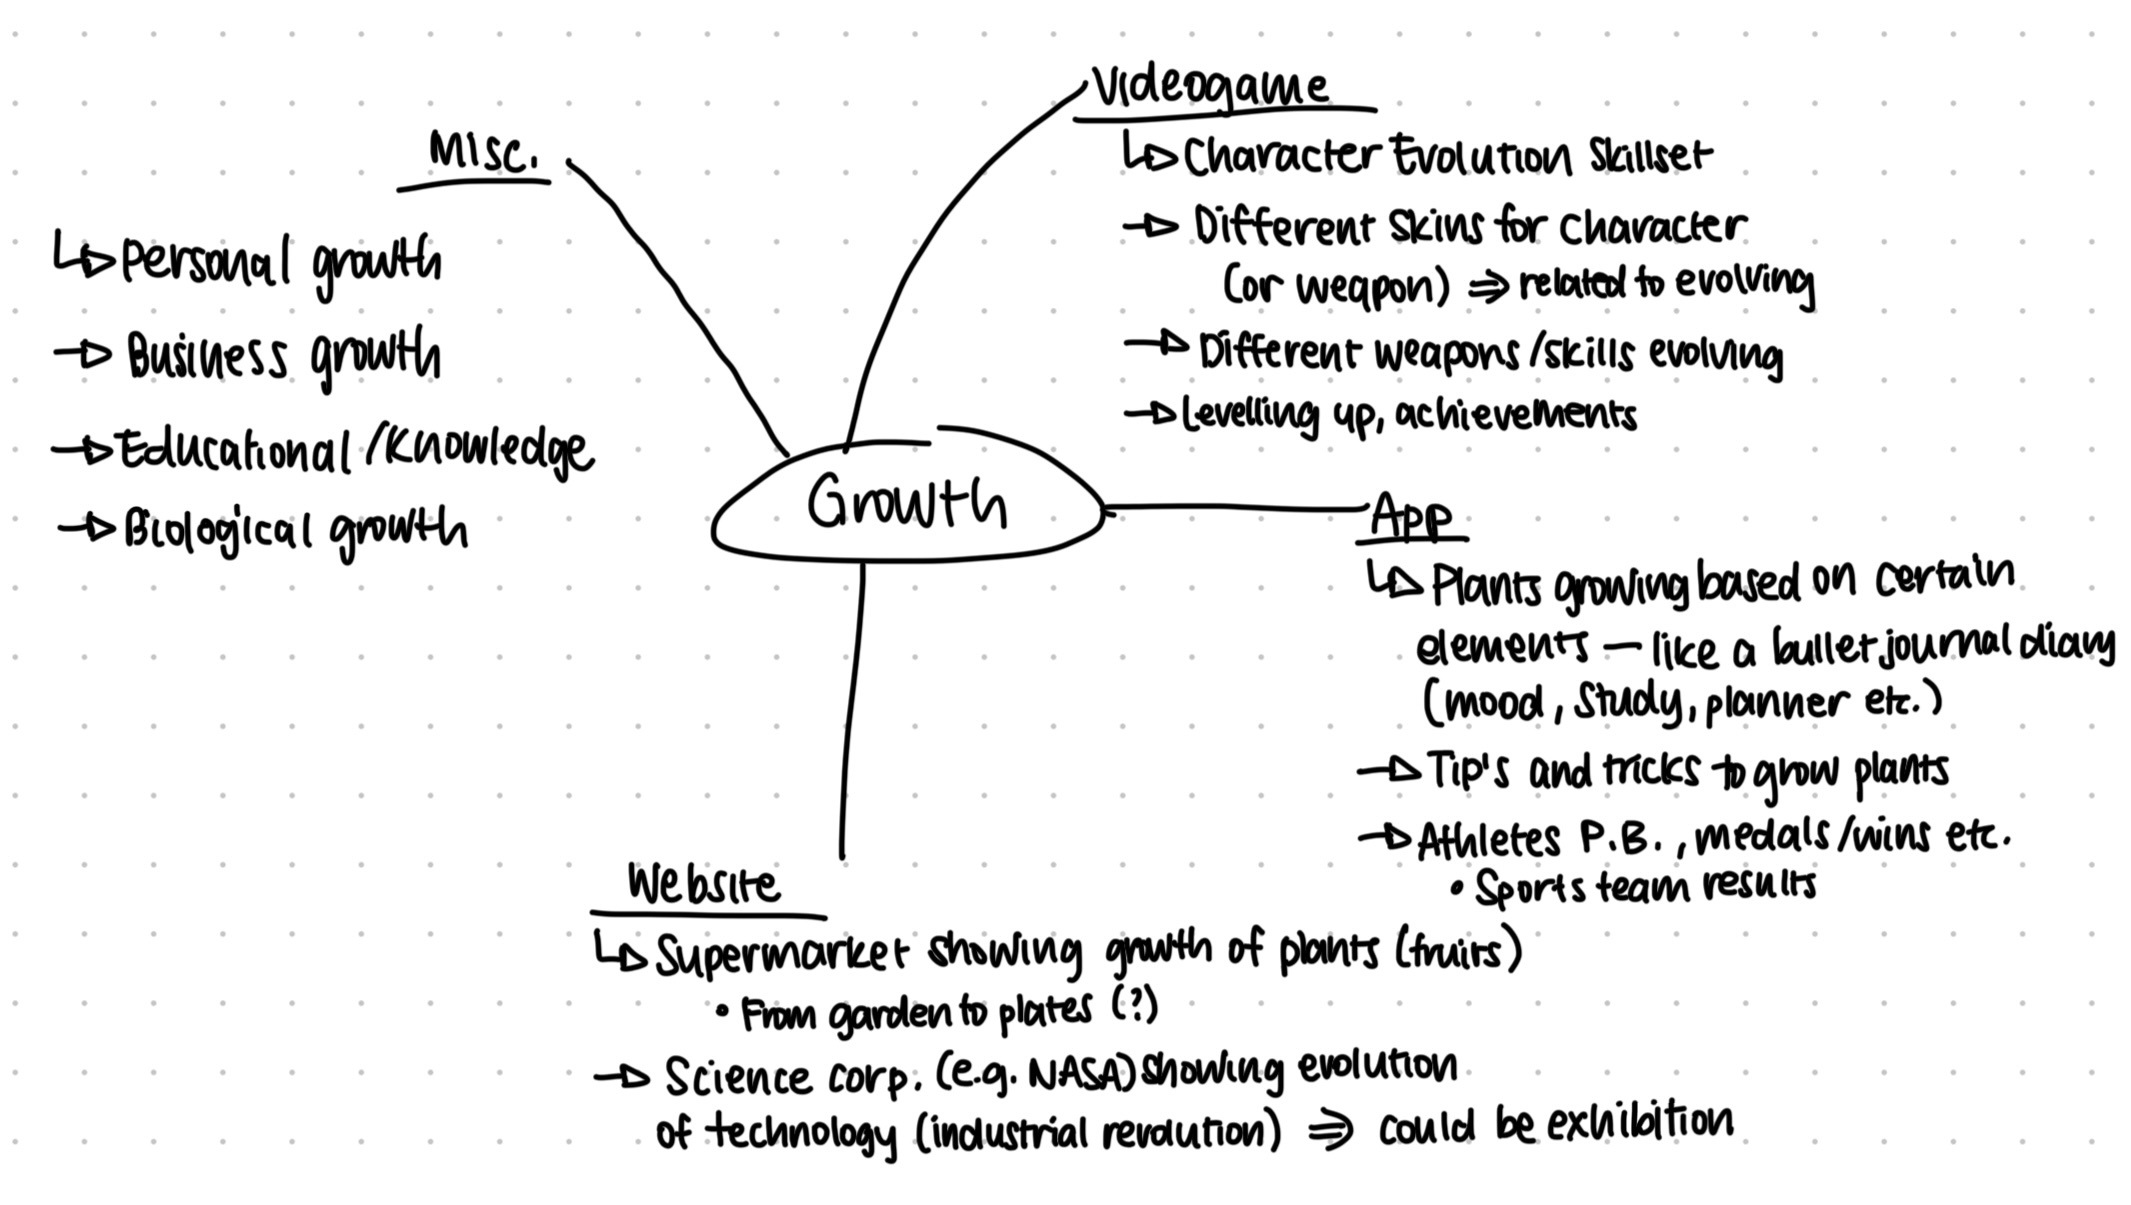 Misc.
Personal growth
Business growth
Educational/Knowledge
Biological growth
Videogame
Character Evolution Skillset
Different skins for character
(or weapon) ⇒ related to evolving
Different weapons/skills evolving
Levelling up, achievements
Growth
App
Plants growing based on certain
elements — like a bullet journal diary
(mood, study, planner etc.)
Tip's and tricks to grow plants
Athletes P.B., medals/wins etc.
• Sports team results
Website
Supermarket showing growth of plants (fruits)
• From garden to plates (?)
Science corp. (e.g. NASA) showing evolution
of technology (industrial revolution) ⇒ could be exhibition